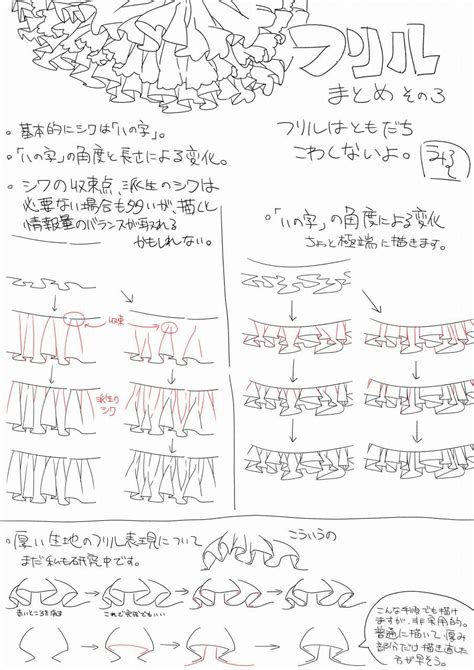 フリル
まとめ その3
フリルはともだち
こわくないよ。
・基本的にシワは「ハの字」。
・「ハの字」の角度と長さによる変化。
・シワの収束点、派生のシワは
必要ない場合も多いが、描くと
情報量のバランスが取れる
かもしれない。
・「ハの字」の角度による変化
ちょっと極端に描きます。
収束
派生の
シワ
・厚い生地のフリル表現について
まだ私も研究中です。
こういうの
これで完成でもいい
こんな手順でも描け
ますが、非実用的。
普通に描いて厚み
部分だけ描き直した
方が早そう。